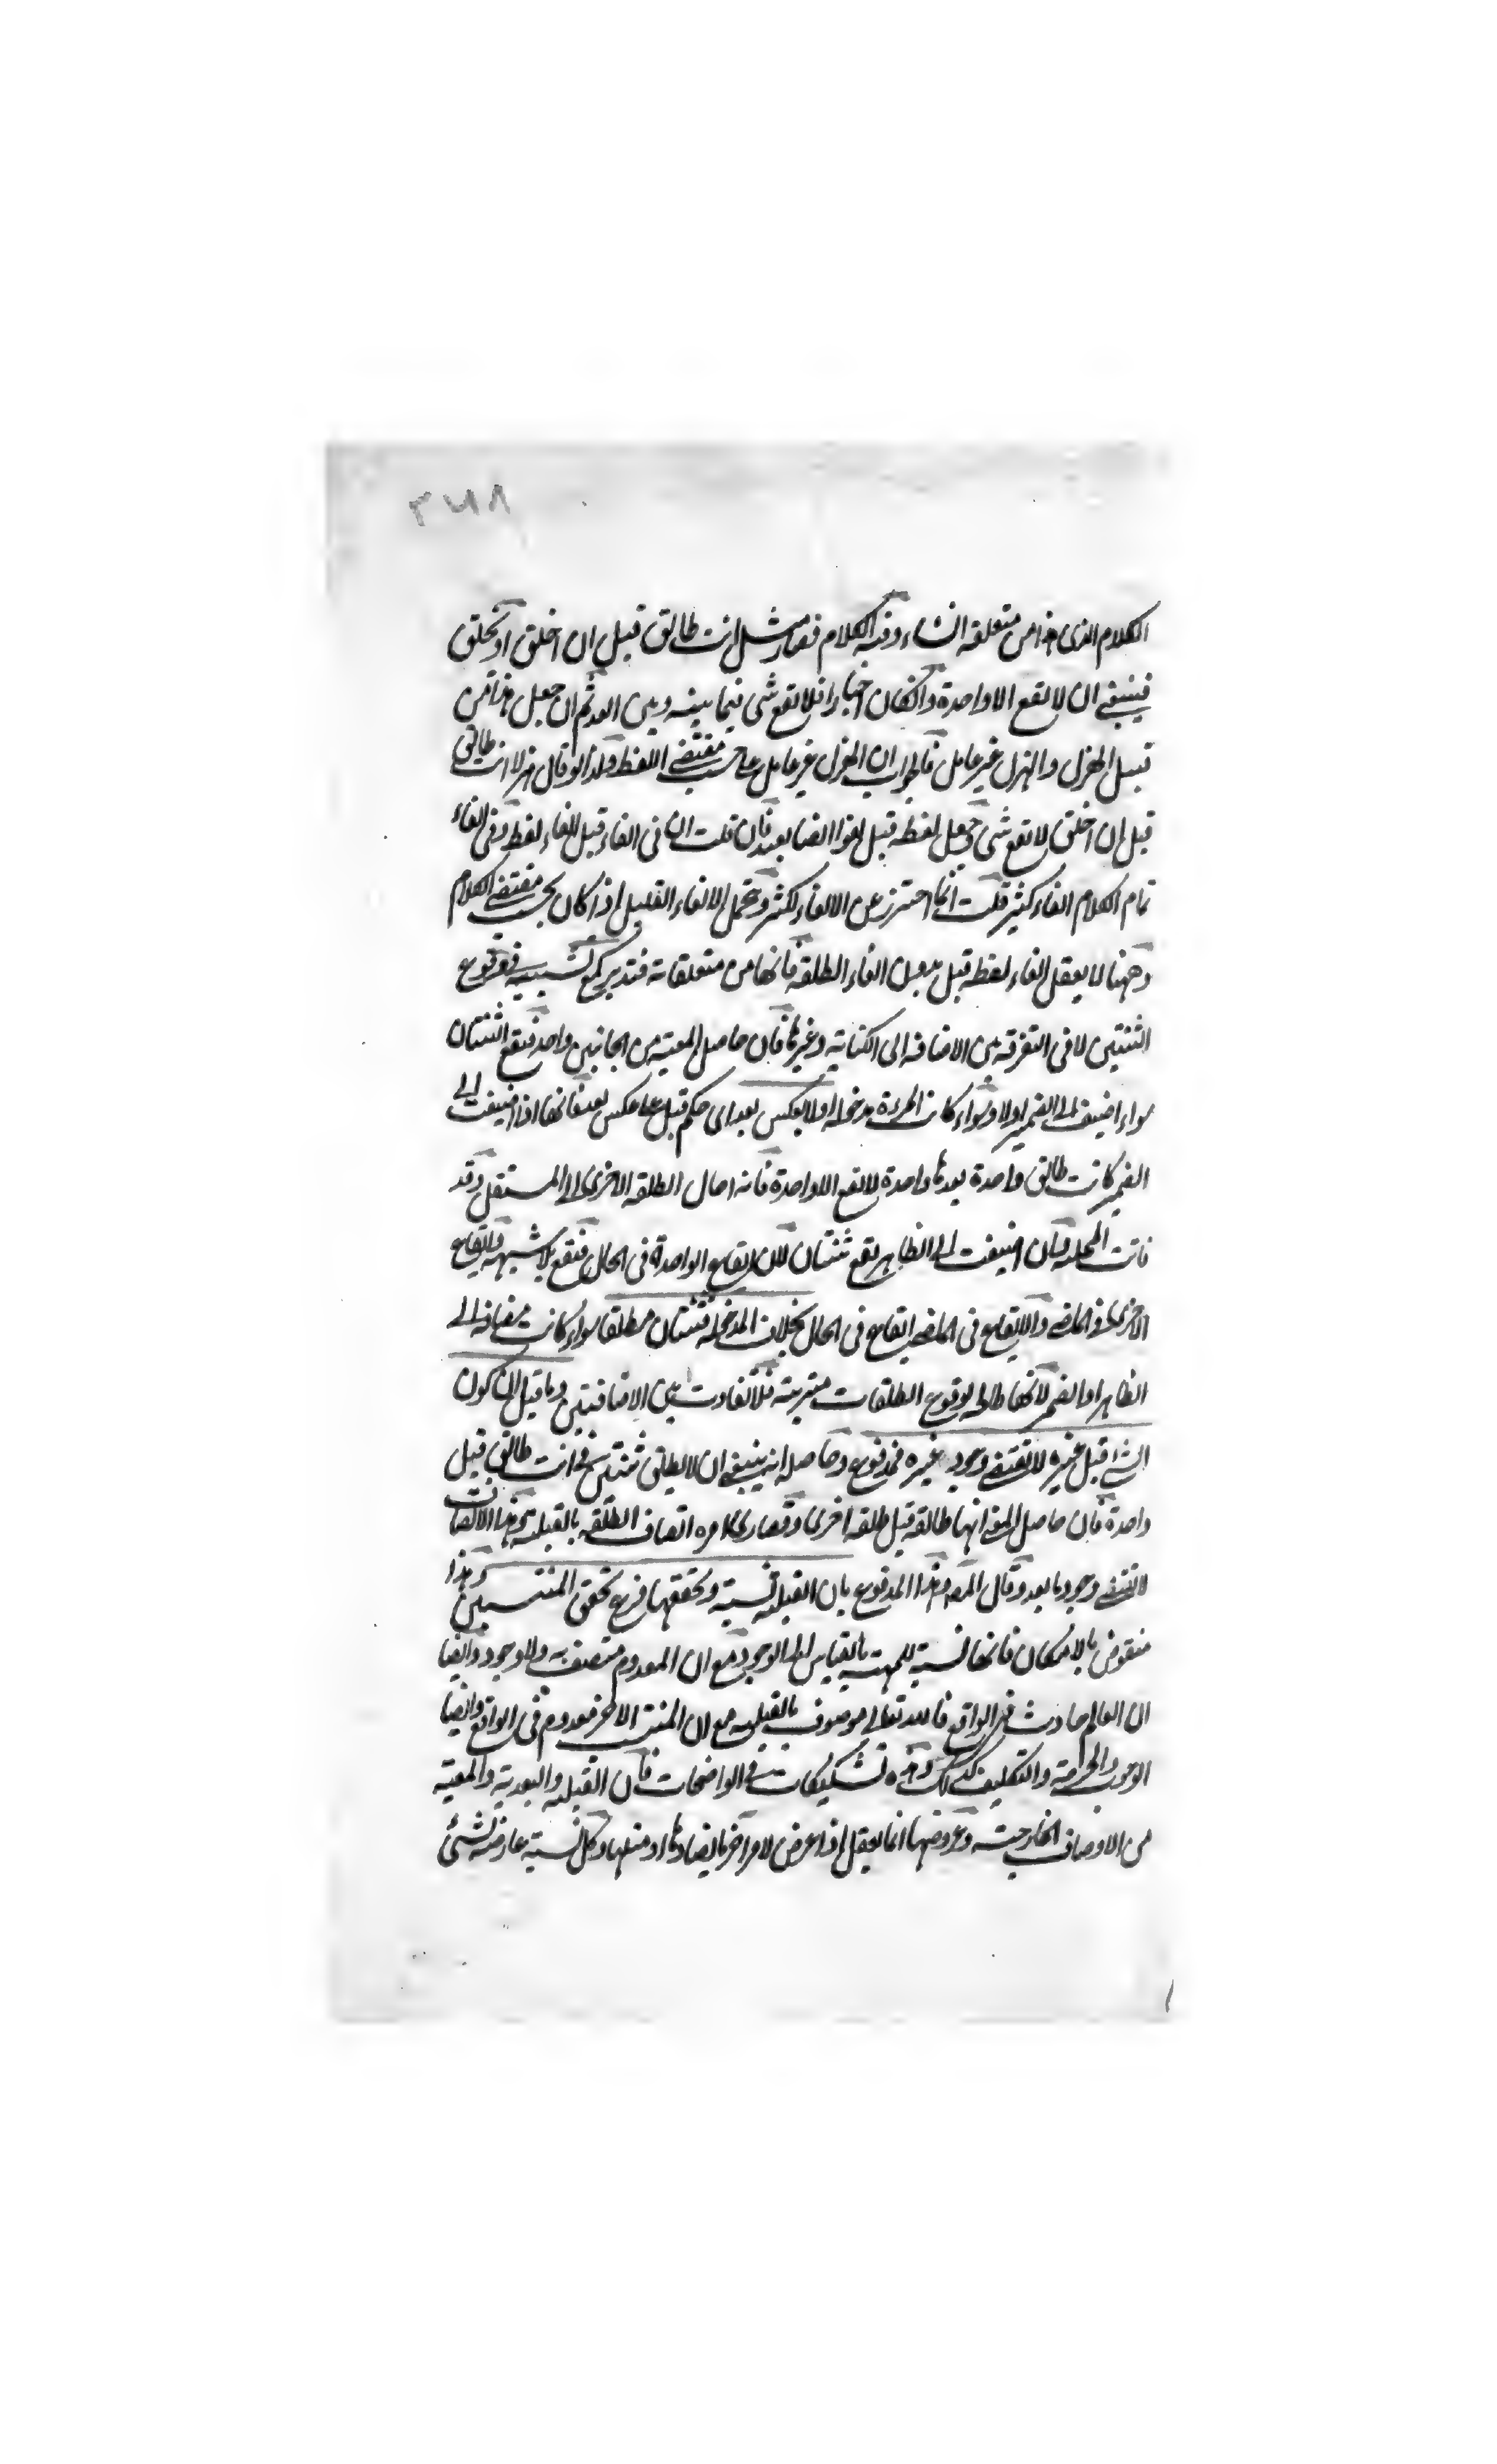 ٣٧٨
الكلام الذى هذا من متعلقه انشاء وفيه الكلام فصار مثل انت طالق قبل ان اخلق او تخلق
فينبغى ان لا يقع الا واحدة وان كان اخبارا فلا يقع شئ فيما بينه وبين الله ثم ان جعل هذا من
قبيل الهزل والهزل غير عامل فالجواب ان الهزل غير عامل على حسب مقتضى اللفظ ولذا لو قال هزلا انت طالق
قبل ان اخلق لا يقع شئ وجعل لفظه قبل لغوا ايضا بعيد فان قلت ان فى الغاء قبل الغاء لفظ وفى الغاء
تمام الكلام الغاء كثير قلت انما احترز عن الالغاء لكثير وتحمل الالغاء القليل اذا كان بحسب مقتضى الكلام
وههنا لا يعقل الغاء لفظه قبل بدون الغاء الطلقة فانها من متعلقاته فتدبر كمع تشبيه فى وقوع
الثنتين لا فى التفرقة بين الاضافة الى الكناية وغيرها فان حاصل المعية من الجانبين واحد فيقع الثنتان
سواء اضيف الى الضمير اولا وسواء كانت المرءة مدخولة اولا بعكس بعد اى حكم قبل على عكس بعد فانها اذا اضيفت الى
الضمير كانت طالق واحدة بعدها واحدة لا يقع الا واحدة فانه احال الطلقة الاخرى الى المستقبل وقد
فاتت المحلية وان اضيفت الى الظاهر يقع ثنتان لان ايقاع الواحدة فى الحال فيقع بلا شبهة وايقاع
الاخرى فى الماضى والايقاع فى الماضى ايقاع فى الحال بخلاف المدخولة فثنتان مطلقا سواء كانت مضافة الى
الظاهر او الضمير لانها طالحة لوقوع الطلقات مترتبة فلا تفاوت بين الاضافتين وما قيل ان كون
الشئ قبل غيره لا يقتضى وجود غيره فمدفوع وحاصله انه ينبغى ان لا يطلق ثنتين فى انت طالق قبل
واحدة فان حاصل المعنى انها طالقة قبل طلقة اخرى وقصارى امره اتصاف الطلقة بالقبلية وهذا الاتصاف
لا يقتضى وجود ما بعد وقال المص وهذا المدفوع بان القبلية نسبة وتحققها فرع تحقق المنتسبين وهذا
منقوض بالامكان فانها نسبة للمهية بالقياس الى الوجود مع ان المعدوم متصف به ولا وجود وايضا
ان العالم حادث فى الواقع فالله تعالى موصوف بالقبلية مع ان المنتسب الاخر معدوم فى الواقع وايضا
الوجوب والحرمة والتكليف كذلك وهذه تشكيكات فى الواضحات فان القبلية والبعدية والمعية
من الاوصاف الخارجية وعروضها انما يعقل اذا عرض لامر آخر ما يضادها او مثلها وكل نسبة عارضة لشئ